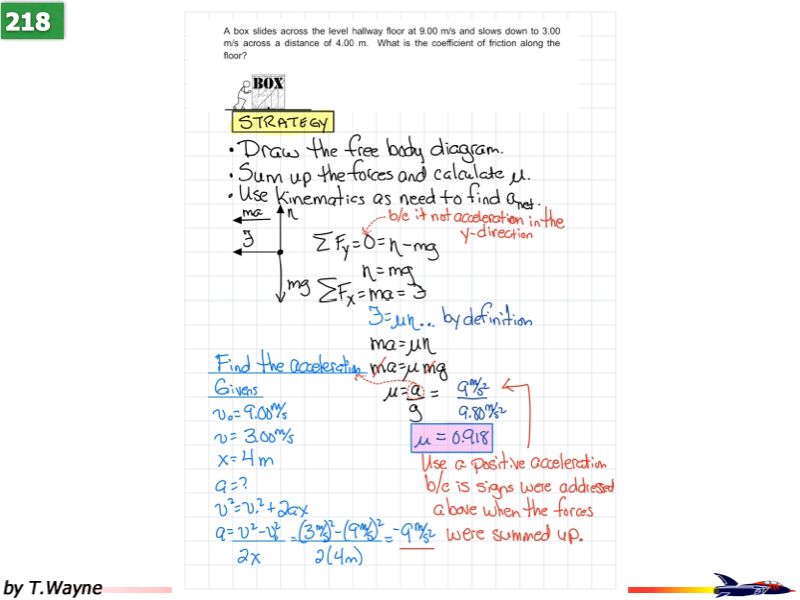 218
A box slides across the level hallway floor at 9.00 m/s and slows down to 3.00
m/s across a distance of 4.00 m. What is the coefficient of friction along the
floor?
BOX
STRATEGY
• Draw the free body diagram.
• Sum up the forces and calculate μ.
• Use kinematics as need to find a_net.
ma
n
ℱ
mg
b/c it not acceleration in the
y-direction
ΣF_y=0=n-mg
n=mg
ΣF_x=ma=ℱ
ℱ=μn... by definition
ma=μn
ma=μmg
μ=a/g = 9 m/s²/9.80 m/s²
μ=0.918
Find the acceleration
Givens
v₀=9.00 m/s
v=3.00 m/s
x=4m
a=?
v²=v₀²+2ax
a=(v²-v₀²)/2x=((3 m/s)²-(9 m/s)²)/2(4m)=-9 m/s²
Use a positive acceleration
b/c is signs were addressed
above when the forces
were summed up.
by T.Wayne